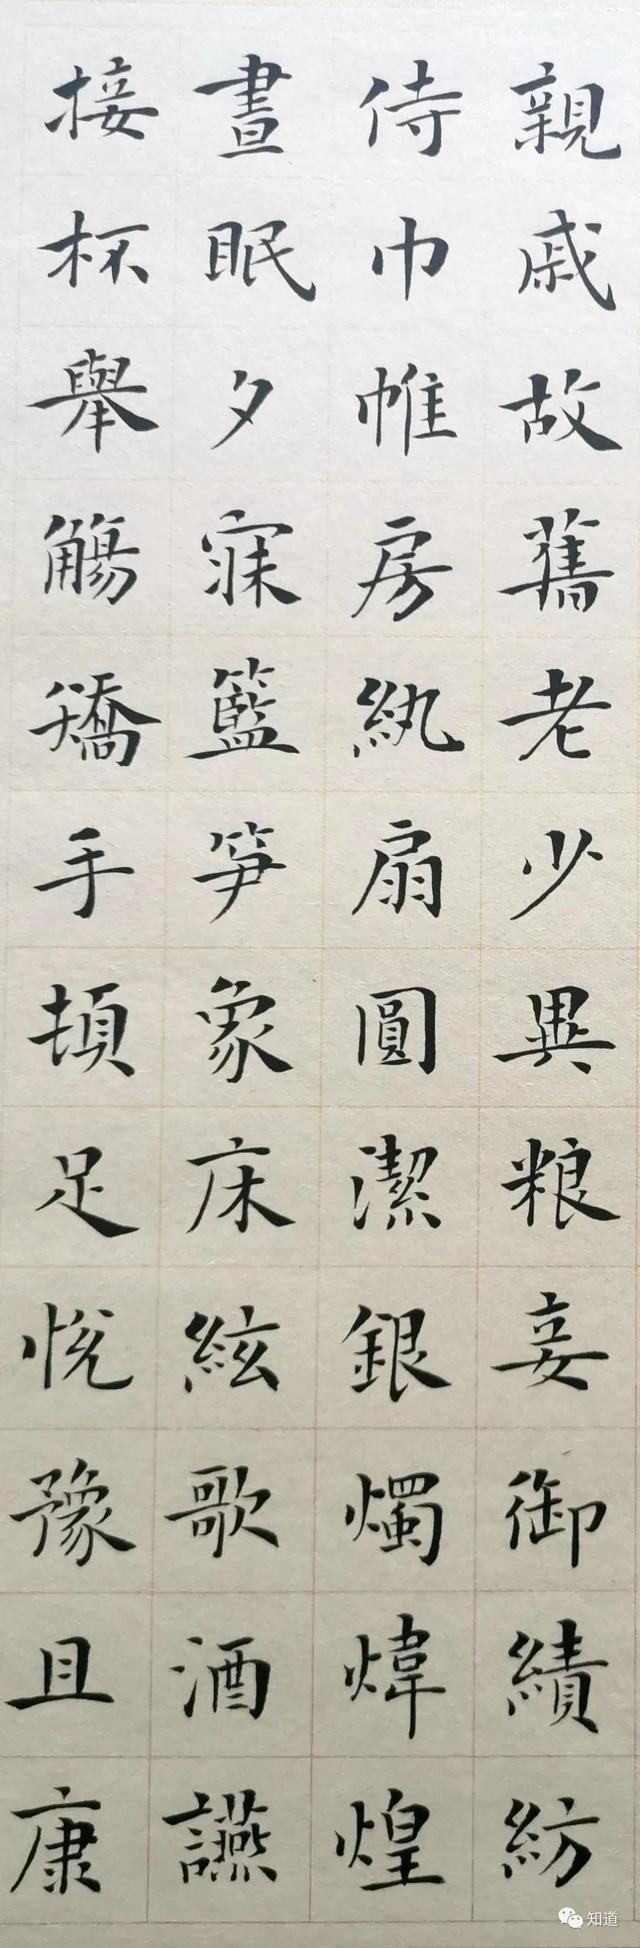 親戚故舊老少異粮妾御績紡
侍巾帷房紈扇圓潔銀燭煒煌
晝眠夕寐籃笋象床絃歌酒讌
接杯舉觴矯手頓足悅豫且康
知道